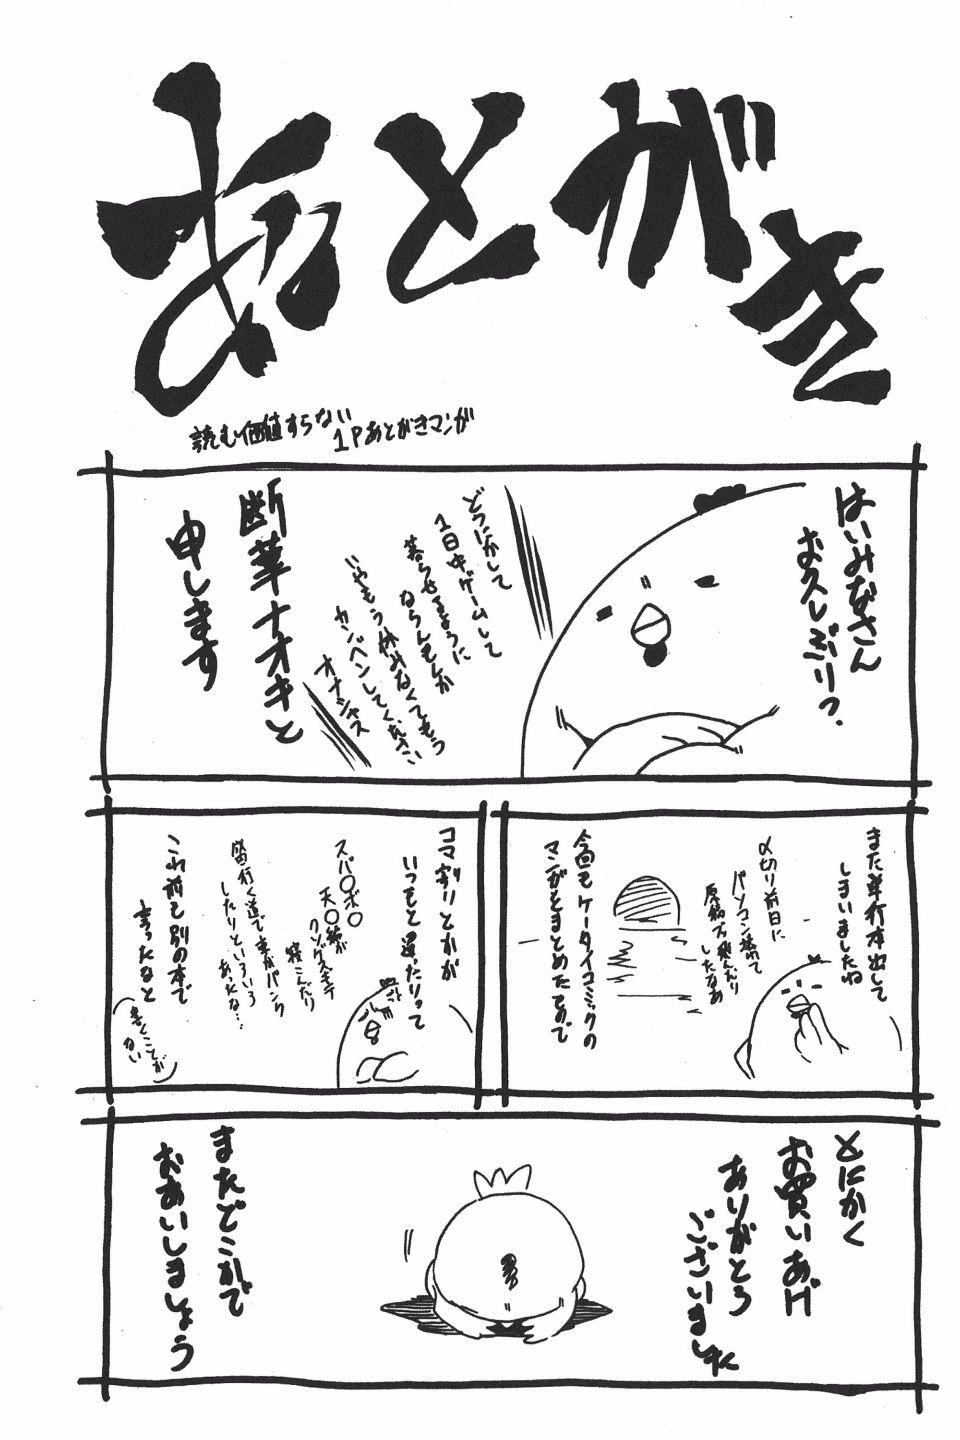 あとがき
読む価値すらない
1Pあとがきマンガ
はいみなさん
お久しぶりっ。
どうにかして
1日中ゲームして
暮らせるように
ならんもんか
いやもう休みなくてもう
カンベンしてください
オナシャス
断華ナオキと
申します
また単行本出して
しまいましたね
〆切り前日に
パソコン壊れて
原稿万飛んだり
したなあ
今回もケータイコミックの
マンガをまとめたもので
コマ割りとかが
いつもと違ったりって
スパ○ボ○
天○編が
クソゲスギテ
寝こんだり
行く道で車がパンク
したりといろいろ
あったな…
これ前も別の本で
言ったなと
書くことが
ない
とにかく
お買いあげ
ありがとう
ございました
またどこかで
おあいしましょう